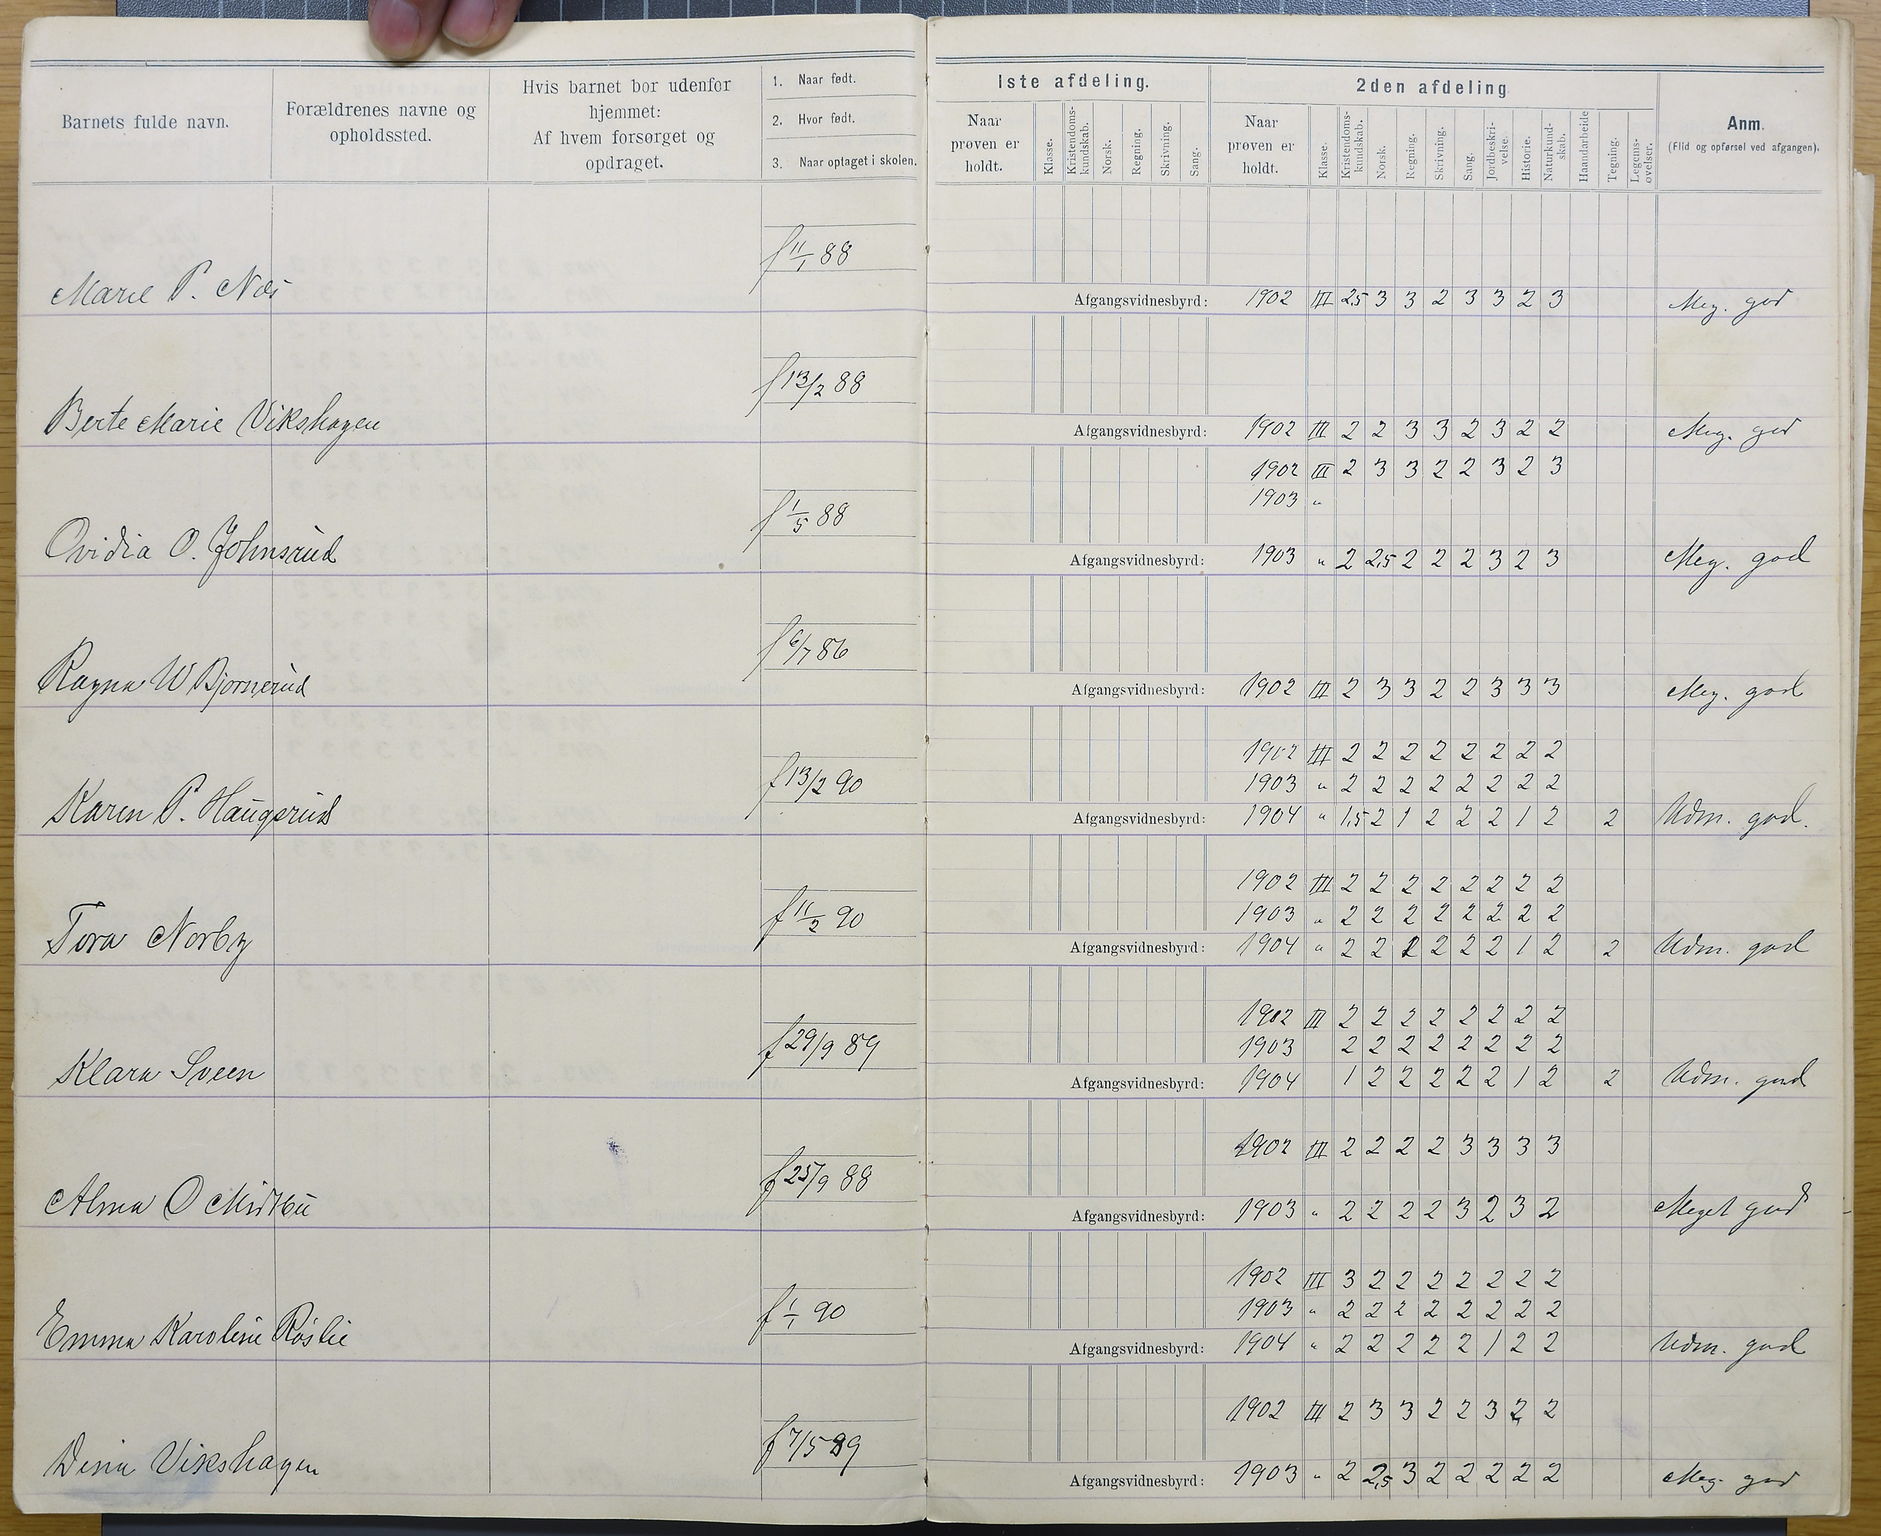 Barnets fulde navn.
Forældrenes navne og opholdssted.
Hvis barnet bor udenfor hjemmet:
Af hvem forsørget og opdraget.
1. Naar født.
2. Hvor født.
3. Naar optaget i skolen.
1ste afdeling.
2den afdeling
Naar prøven er holdt.
Klasse.
Kristendoms-kundskab.
Norsk.
Regning.
Skrivning.
Sang.
Naar prøven er holdt.
Klasse.
Kristendoms-kundskab.
Norsk.
Regning.
Skrivning.
Sang.
Jordbeskri-velse.
Historie.
Naturkund-skab.
Haandarbeide
Tegning.
Legems-øvelser.
Anm.
(Flid og opførsel ved afgangen).
f 11/1 88
Marie P. Næs
Afgangsvidnesbyrd: 1902 III 2,5 3 3 2 3 3 2 3 Meg. god
f 13/2 88
Berte Marie Vikshagen
Afgangsvidnesbyrd: 1902 III 2 2 3 3 2 3 2 2 Meg. god
1902 III 2 3 3 2 2 3 2 3
1903 "
f 1/5 88
Ovidia O. Johnsrud
Afgangsvidnesbyrd: 1903 " 2 2,5 2 2 2 3 2 3 Meg. god
f 6/7 86
Ragna W Bjørnerud
Afgangsvidnesbyrd: 1902 III 2 3 3 2 2 3 3 3 Meg. god
1902 III 2 2 2 2 2 2 2 2
f 13/2 90
1903 " 2 2 2 2 2 2 2 2
Karen P. Haugerud
Afgangsvidnesbyrd: 1904 " 1,5 2 1 2 2 2 1 2 2 Udm. god.
1902 III 2 2 2 2 2 2 2 2
f 11/2 90
1903 " 2 2 2 2 2 2 2 2
Tora Norby
Afgangsvidnesbyrd: 1904 " 2 2 2 2 2 2 1 2 2 Udm. god
1902 III 2 2 2 2 2 2 2 2
f 29/9 89
1903 2 2 2 2 2 2 2 2
Klara Sveen
Afgangsvidnesbyrd: 1904 1 2 2 2 2 2 1 2 2 Udm. god
1902 III 2 2 2 2 3 3 3 3
f 25/9 88
Alma O Midtbu
Afgangsvidnesbyrd: 1903 " 2 2 2 2 3 2 3 2 Meget god
1902 III 3 2 2 2 2 2 2 2
f 1/1 90
1903 " 2 2 2 2 2 2 2 2
Emma Karoline Røslie
Afgangsvidnesbyrd: 1904 " 2 2 2 2 2 1 2 2 Udm. god
1902 III 2 3 3 2 2 3 2 2
f 7/5 89
Dina Vikshagen
Afgangsvidnesbyrd: 1903 " 2 2,5 3 2 2 2 2 2 Meg. god